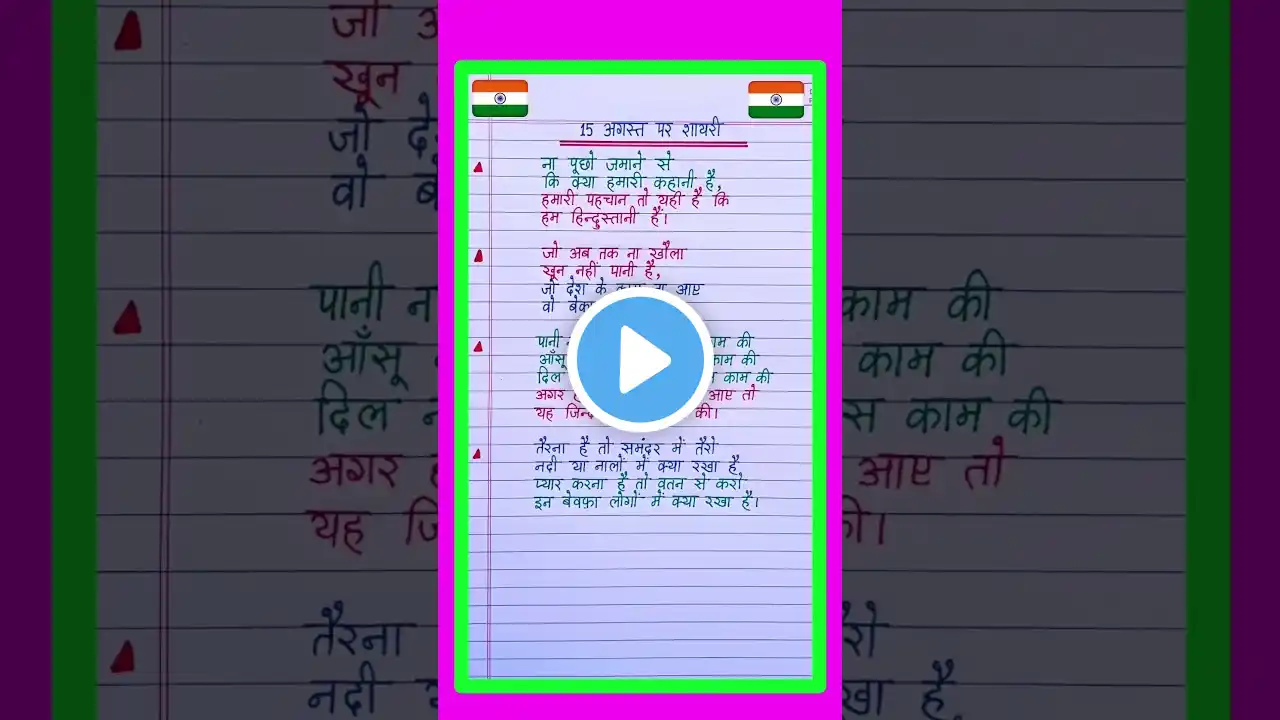 15 अगस्त पर शायरी
ना पूछो जमाने से
कि क्या हमारी कहानी है,
हमारी पहचान तो यही है कि
हम हिन्दुस्तानी हैं।
जो अब तक ना खौला
खून नहीं पानी है,
जो देश के काम ना आए
वो
पानी काम की
आँसू काम की
दिल काम की
अगर आए तो
यह की।
तैरना है तो समंदर में तैरो
नदी या नालों में क्या रखा है,
प्यार करना है तो वतन से करो
इन बेवफ़ा लोगों में क्या रखा है।